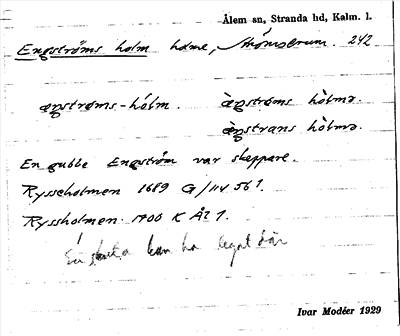 Ålem sn, Stranda hd, Kalm. l.
Engströms holm holme, Strömserum. 242
æŋstrøms-hólm. ὰŋstrøms hòlmə.
ὰŋstrans hòlmə.
En gubbe Engström var skeppare.
Rysseholmen 1689 G/114 561.
Ryssholmen. 1700 K Ål 1.
En skuta kan ha legat där
Ivar Modéer 1929